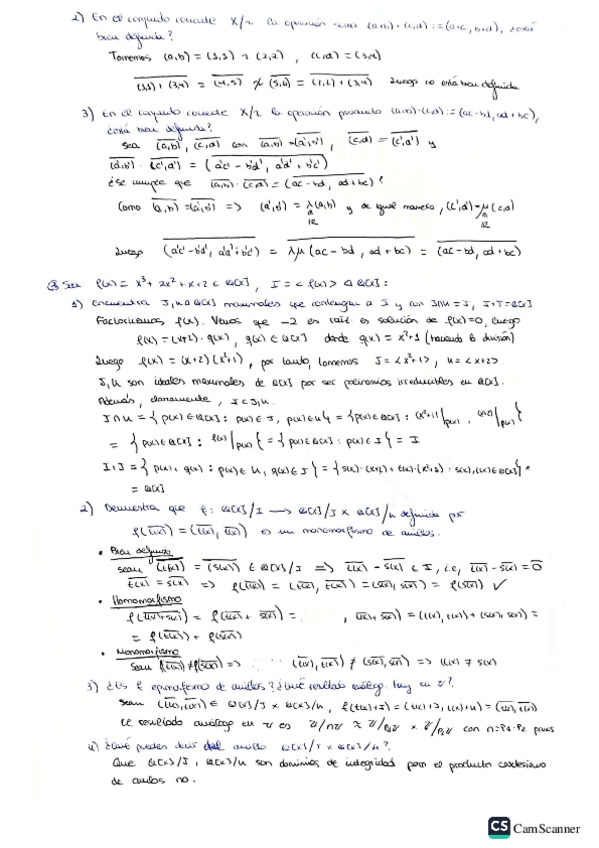 2) En el conjunto cociente X/~ la operación suma (a,b)+(c,d):=(a+c, b+d), ¿está
bien definida?
Tomemos (a,b) = (1,1) ~ (2,2), (c,d) = (3,4)
(1,1)+(3,4) = (4,5) ≁ (5,6) = (2,2)+(3,4) luego no está bien definida
3) En el conjunto cociente X/~ la operación producto (a,b)·(c,d):=(ac-bd, ad+bc),
¿está bien definida?
Sea (a,b), (c,d) con (a,b) = (a',b'), (c,d) = (c',d') y
(a',b')·(c',d') = (a'c'-b'd', a'd'+b'c')
¿Se cumple que (a,b)·(c,d) = (ac-bd, ad+bc)?
Como (a,b) = (a',b') => (a',b') = λ(a,b) y de igual manera, (c',d') = μ(c,d)
ℝ ℝ
Luego (a'c'-b'd', a'd'+b'c') = λμ(ac-bd, ad+bc) = (ac-bd, ad+bc)
Sea f(x) = x³+2x²+x+2 ∈ Q[x], I = <f(x)> ◁ Q[x]:
1) Encuentra J, K ◁ Q[x] maximales que contengan a I y con J∩K = I, J+K = Q[x]
Factorizamos f(x). Vemos que -2 es raíz es solución de f(x)=0, luego
f(x) = (x+2)·q(x), q(x) ∈ Q[x] donde q(x) = x²+1 (haciendo la división)
Luego f(x) = (x+2)(x²+1), por tanto, tomemos J = <x²+1>, K = <x+2>
J, K son ideales maximales de Q[x] por ser polinomios irreducibles en Q[x].
Además, claramente, I ⊂ J, K.
J∩K = { p(x) ∈ Q[x] : p(x) ∈ J, p(x) ∈ K } = { p(x) ∈ Q[x] : (x²+1)|p(x), (x+2)|p(x) }
= { p(x) ∈ Q[x] : f(x)|p(x) } = { p(x) ∈ Q[x] : p(x) ∈ I } = I
= Q[x]
2) Demuestra que f: Q[x]/I → Q[x]/J × Q[x]/K definida por
f(t(x)) = (t(x), t(x)) es un monomorfismo de anillos.
• Bien definido
sean (t(x)) = (s(x)) ∈ Q[x]/I => t(x) - s(x) ∈ I, i.e, t(x) - s(x) = 0
t(x) = s(x) => f(t(x)) = (t(x), t(x)) = (s(x), s(x)) = f(s(x)) ✓
• Homomorfismo
f(t(x)+s(x)) = f(t(x) + s(x)) = , t(x)+s(x)) = (t(x), t(x)) + (s(x), s(x)) =
= f(t(x)) + f(s(x))
• Monomorfismo
Sean f(t(x)) ≠ f(s(x)) => (t(x), t(x)) ≠ (s(x), s(x)) => t(x) ≠ s(x)
3) ¿Es f epimorfismo de anillos? ¿Qué resultado análogo hay en Z?
El resultado análogo en Z es Z/nZ ≅ Z/p₁Z × Z/p₂Z con n = p₁·p₂ primos
4) ¿Qué puedes decir del anillo Q[x]/J × Q[x]/K?
Que Q[x]/J, Q[x]/K son dominios de integridad pero el producto cartesiano
de anillos no.
CS CamScanner